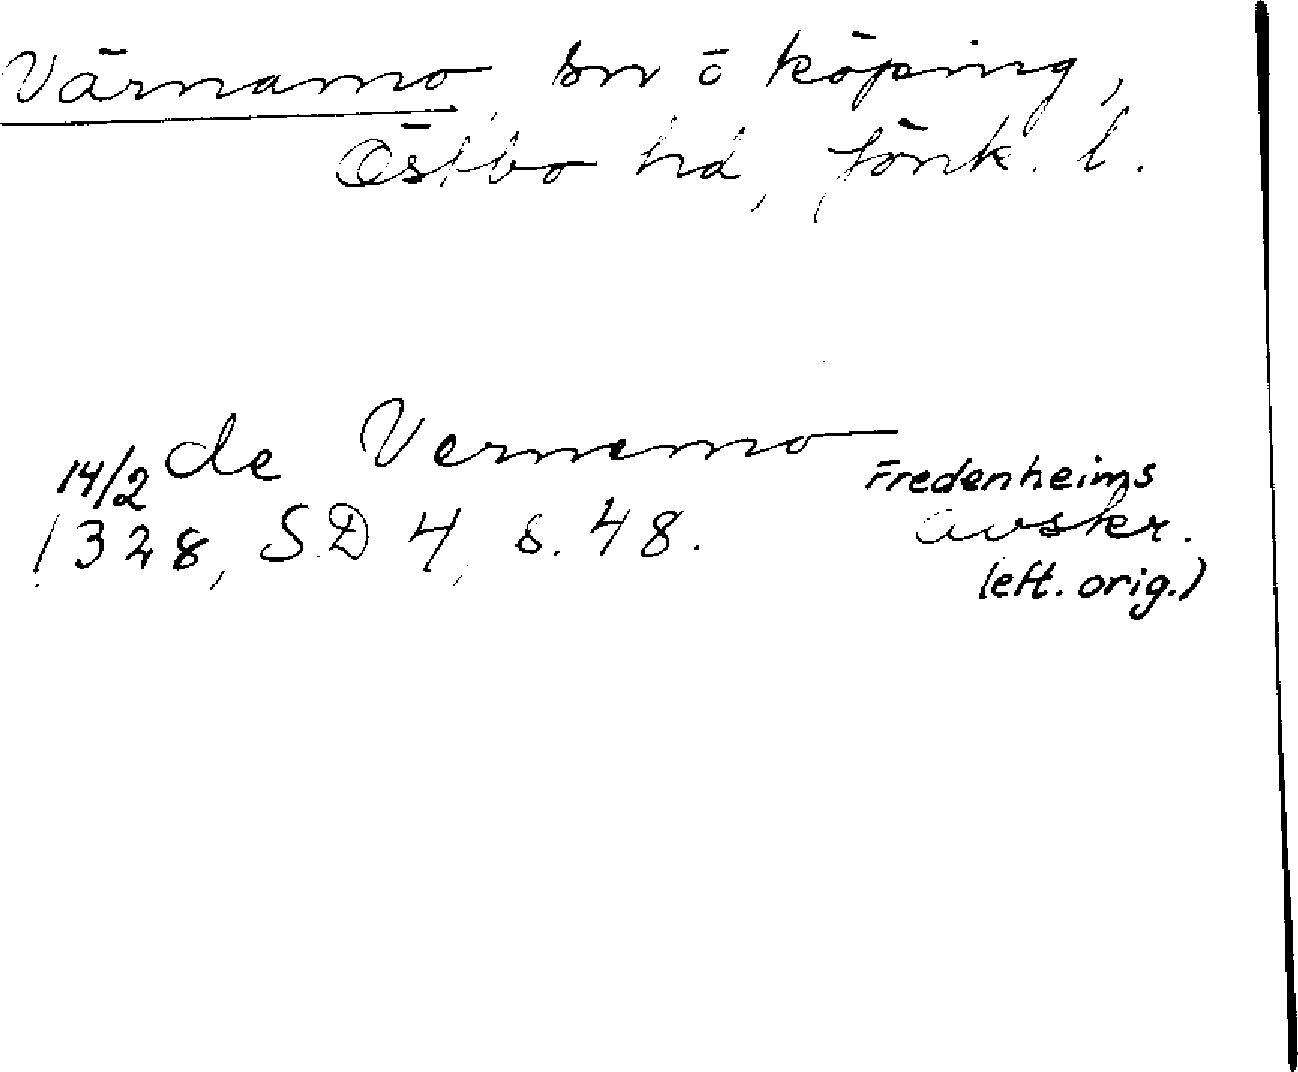 Värnamo, sn o köping,
Östbo hd, Jönk. l.
de Vernemo
14/2 1328, SD 4, s. 48.
Fredenheims
avskr.
(eft. orig.)